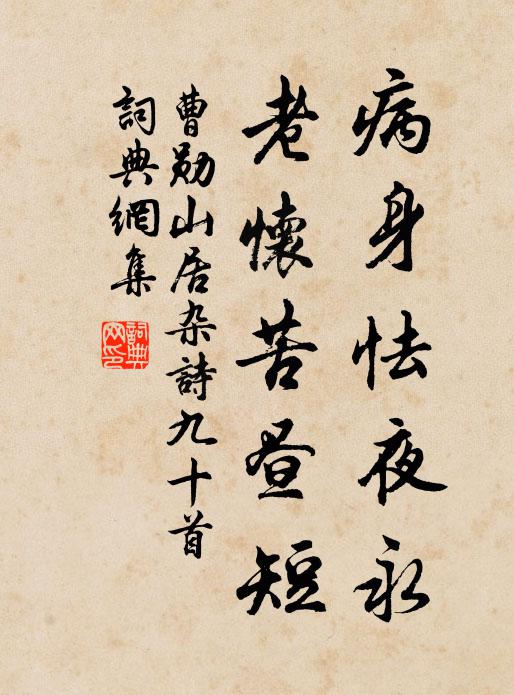 病身怯夜永
老懷苦昼短
曹勛山居杂詩九十首
詞典網集
詞典網印